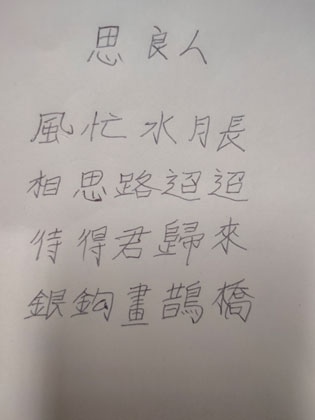 思良人
風忙水月長
相思路迢迢
待得君歸來
銀鉤畫鵲橋